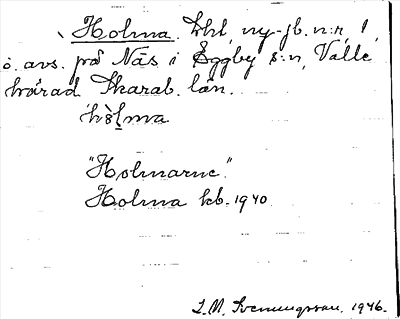 Holma lht, ny-jb. n:r 1,
ö. avs. på Näs i Eggby s:n, Valle
härad Skarab. län.
hòlma
"Holmarne."
Holma kb. 1940
L.M. Svenungsson, 1946.